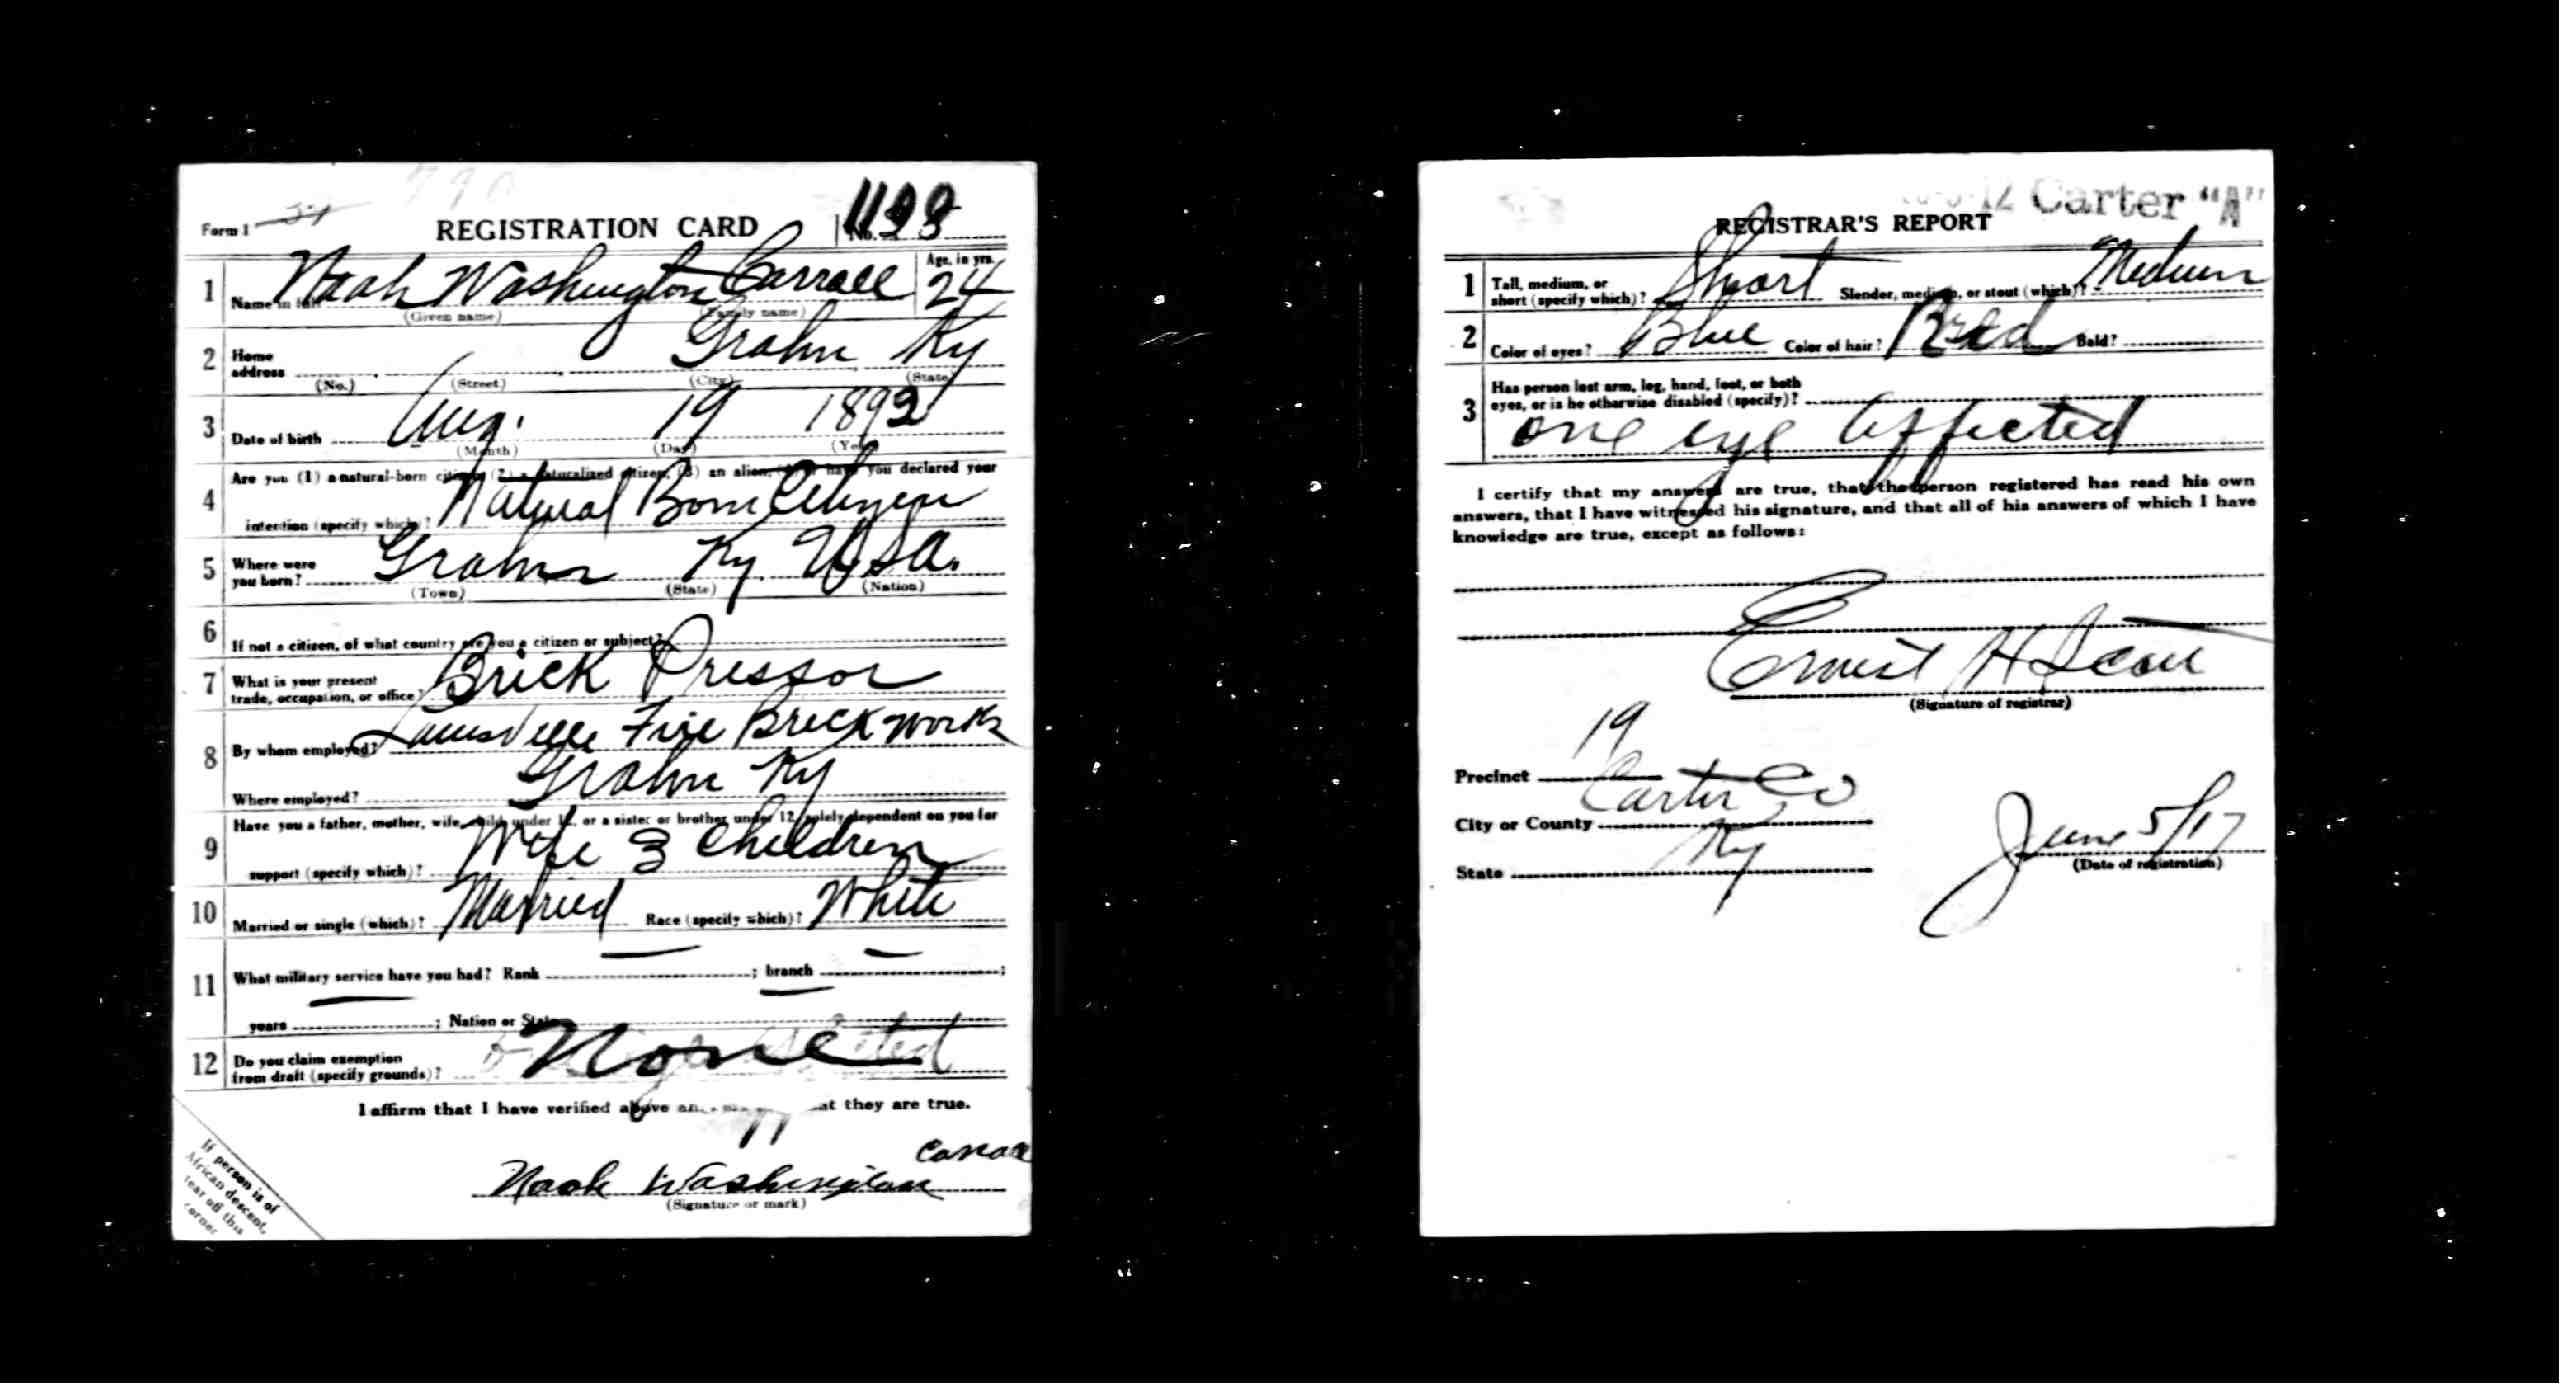 Form 1
REGISTRATION CARD
No.
1 Name in full Noah Washington Carroll Age, in yrs. 24
(Given name) (Family name)
2 Home address Grahn Ky
(No.) (Street) (City) (State)
3 Date of birth Aug. 19 1892
(Month) (Day) (Year)
4 Are you (1) a natural-born citizen (2) a naturalized citizen, (3) an alien, (4) or have you declared your
intention (specify which)? Natural Born Citizen
5 Where were you born? Grahn Ky. USA.
(Town) (State) (Nation)
6 If not a citizen, of what country are you a citizen or subject?
7 What is your present trade, occupation, or office? Brick Pressor
8 By whom employed? Louisville Fire Brick Works
Where employed? Grahn Ky
9 Have you a father, mother, wife, child under 12, or a sister or brother under 12, solely dependent on you for
support (specify which)? Wife 3 Children
10 Married or single (which)? Married Race (specify which)? White
11 What military service have you had? Rank — ; branch — ;
years — ; Nation or State —
12 Do you claim exemption from draft (specify grounds)? None
I affirm that I have verified above at they are true.
Noah Washington Carroll
(Signature or mark)
If person is of
African descent,
tear off this
corner
Carter "A"
REGISTRAR'S REPORT
1 Tall, medium, or short (specify which)? Short Slender, medium, or stout (which)? Medium
2 Color of eyes? Blue Color of hair? Red Bald?
3 Has person lost arm, leg, hand, foot, or both
eyes, or is he otherwise disabled (specify)?
one eye affected
I certify that my answers are true, that the person registered has read his own
answers, that I have witnessed his signature, and that all of his answers of which I have
knowledge are true, except as follows:
Ernest H
(Signature of registrar)
Precinct 19
City or County Carter Co
State Ky
June 5/17
(Date of registration)